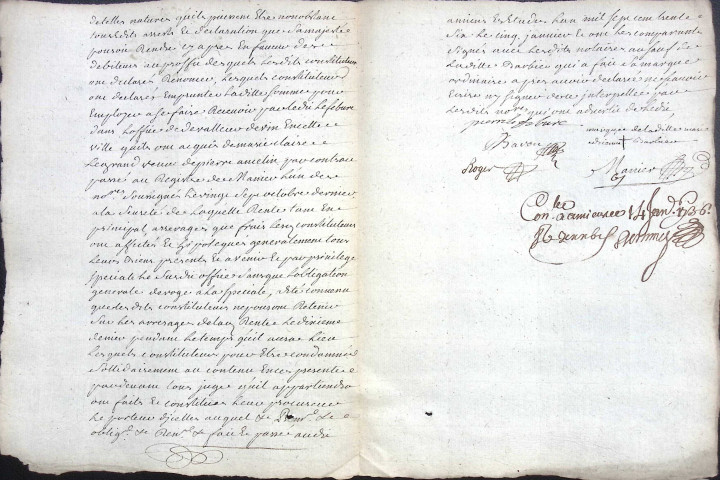 de telles natures qu'ils puissent Etre nonobstant
tous Edits arrets Et declaration que Sa majesté
pouroit Rendre cy apres En faveur des
debiteurs au proffit desquels Lesdits constituteurs
ont declaré Renoncer, Lesquels constituteurs
ont declaré Emprunter Laditte Somme pour
Employer a se faire Recevoir par Ledit Lefebvre
dans Loffice de devalleur de vin En cette
ville quils ont acquis de marie claire
Legrand veuve de pierre ancelin par contract
passé au Registre de Manier Lun des
nores. Soussignés Le vingt Sept octobre dernier
a la Sureté de Laquelle Rente tant En
principal, arrerages que frais Lesd. constituteurs
ont affectés Et hipotequés generalement tous
Leurs biens presents Et avenir Et par privilege
special Ledit office Sans que Lobligation
generale deroge a la Speciale, a Eté convenu
que Lesdits constituteurs ne pouront Retenir
Sur Les arrerages de lad. Rente Le dixieme
denier pendant Le temps qu'il aura Lieu
Lesquels constituteurs pour Etre condamnés
Sollidairement au contenu En ces presentes
pardevant tous juges qu'il appartiendra
ont faits Et constitués Leur procureur
Le porteur d'jcelles auquel &
obligt. & Rent. & fait Et passé audit
amiens Es Etudes Lan mil sept cent trente
Six Le cinq janvier Et ont Les comparants
Signés avec Lesdits notaires au Sauf de
Laditte Barbier qui a fait Sa marque
ordinaire apres avoir declaré ne Scavoir
Ecrire ny Signer de ce interpellée par
Lesdits nores. qui ont advertis du Scellé
pierre le febure
marque de laditte marie
Barbier
Roger
Manier
Con. a amiens ce 14 Janr. 1736.